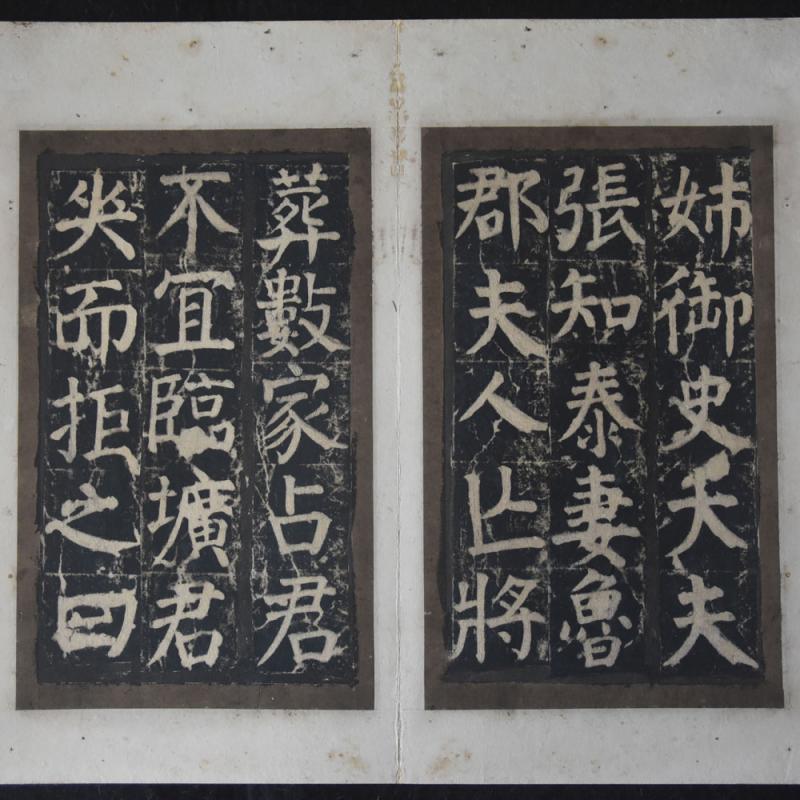 姊御史大夫
張知泰妻魯
郡夫人亡將
葬數家占君
不冝臨壙君
笑而拒之曰